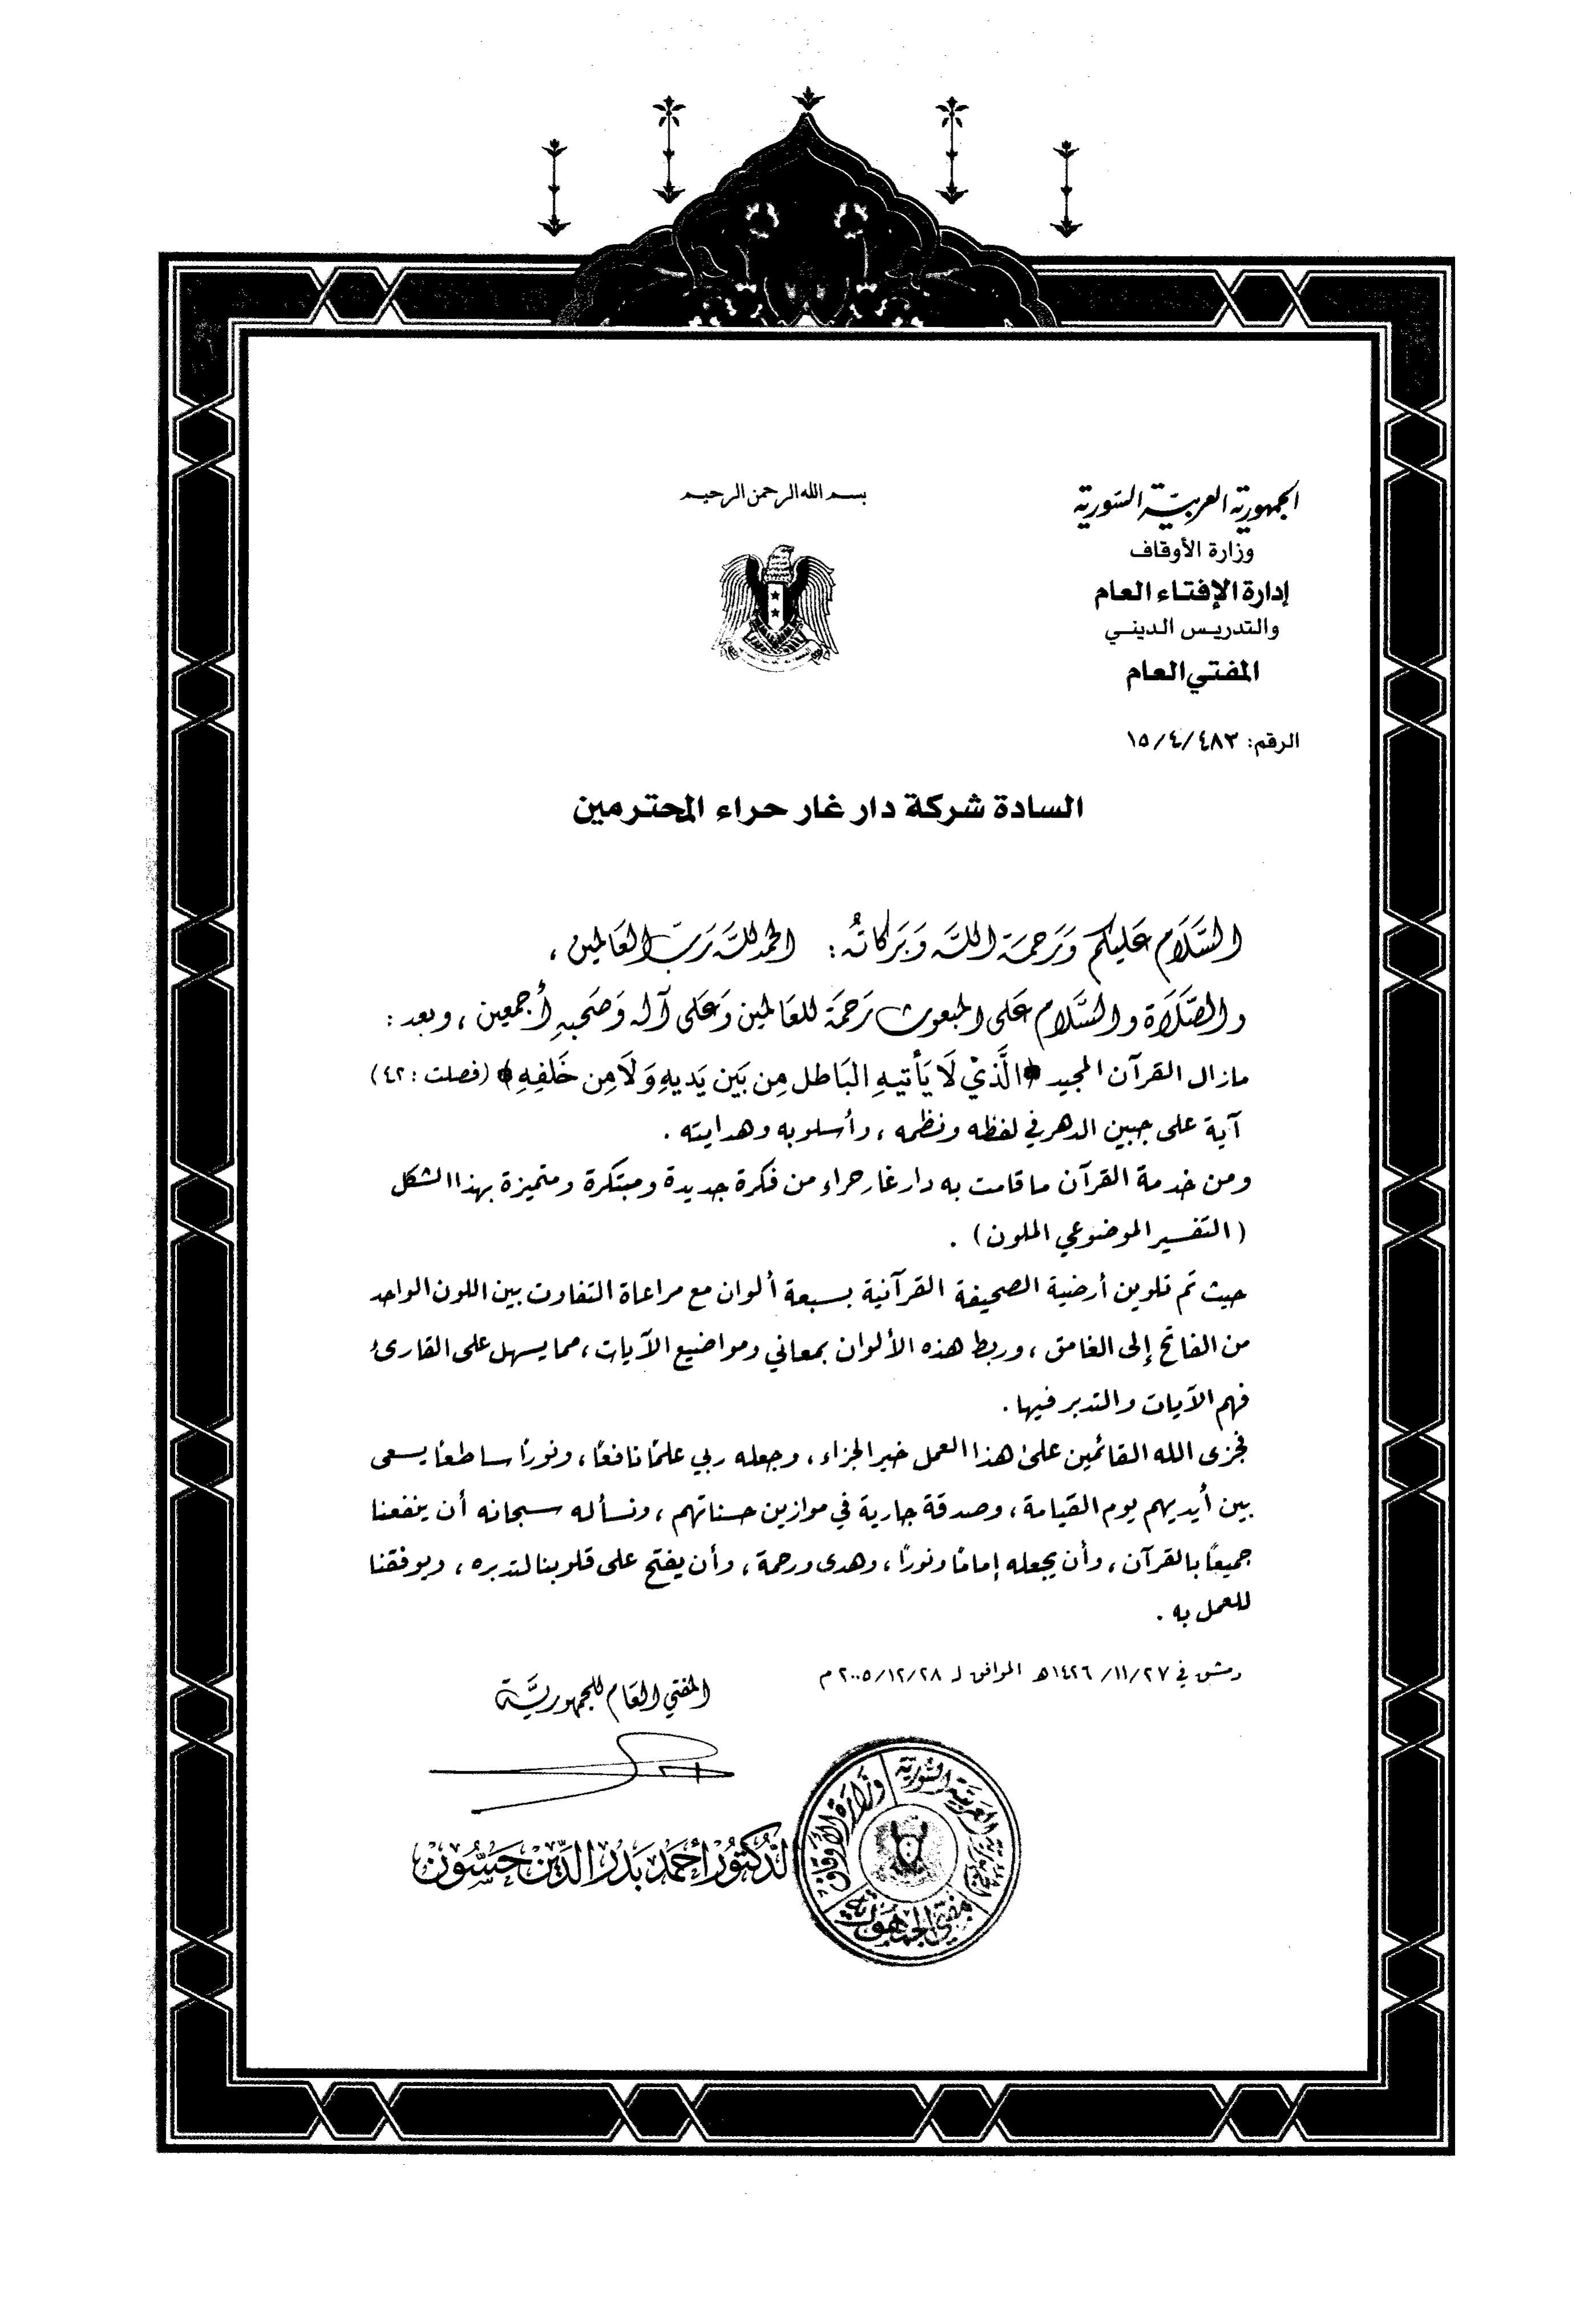 بسم الله الرحمن الرحيم
الجمهورية العربية السورية
وزارة الأوقاف
إدارة الإفتاء العام
والتدريس الديني
المفتي العام
الرقم: ٤٨٣/٤/١٥
السادة شركة دار غار حراء المحترمين
السَّلَام عَليكم وَرَحمَة اللَّه وَبَركَاتُه : الحمد للَّه رَبِّ العَالمين ،
والصَّلَاة والسَّلَام عَلى المبعوث رَحمَة للعَالمين وَعَلى آله وَصَحبِهِ أجمعين ، وبعد :
مازال القرآن المجيد ﴿الَّذي لَا يَأتيهِ البَاطل مِن بَين يَديهِ وَلَا مِن خَلفِهِ﴾ (فصلت : ٤٢)
آية على جبين الدهر في لفظه ونظمه ، وأسلوبه وهدايته .
ومن خدمة القرآن ما قامت به دار غار حراء من فكرة جديدة ومبتكرة ومتميزة بهذا الشكل
( التفسير الموضوعي الملون ) .
حيث تم تلوين أرضية الصحيفة القرآنية بسبعة ألوان مع مراعاة التفاوت بين اللون الواحد
من الفاتح إلى الغامق ، وربط هذه الألوان بمعاني ومواضيع الآيات ، مما يسهل على القارئ
فهم الآيات والتدبر فيها .
فجزى الله القائمين على هذا العمل خير الجزاء ، وجعله ربي علمًا نافعًا ، ونورًا ساطعًا يسعى
بين أيديهم يوم القيامة ، وصدقة جارية في موازين حسناتهم ، ونسأله سبحانه أن ينفعنا
جميعًا بالقرآن ، وأن يجعله إمامًا ونورًا ، وهدى ورحمة ، وأن يفتح على قلوبنا لتدبره ، ويوفقنا
للعمل به .
دمشق في ٢٧/١١/١٤٢٦هـ الموافق لـ ٢٨/١٢/٢٠٠٥م
المفتي العَام للجمهوريَّة
الدُّكتُور أَحمَد بَدرُ الدِّين حَسُّون
الجمهورية العربية السورية
وزارة الأوقاف
مفتي الجمهورية